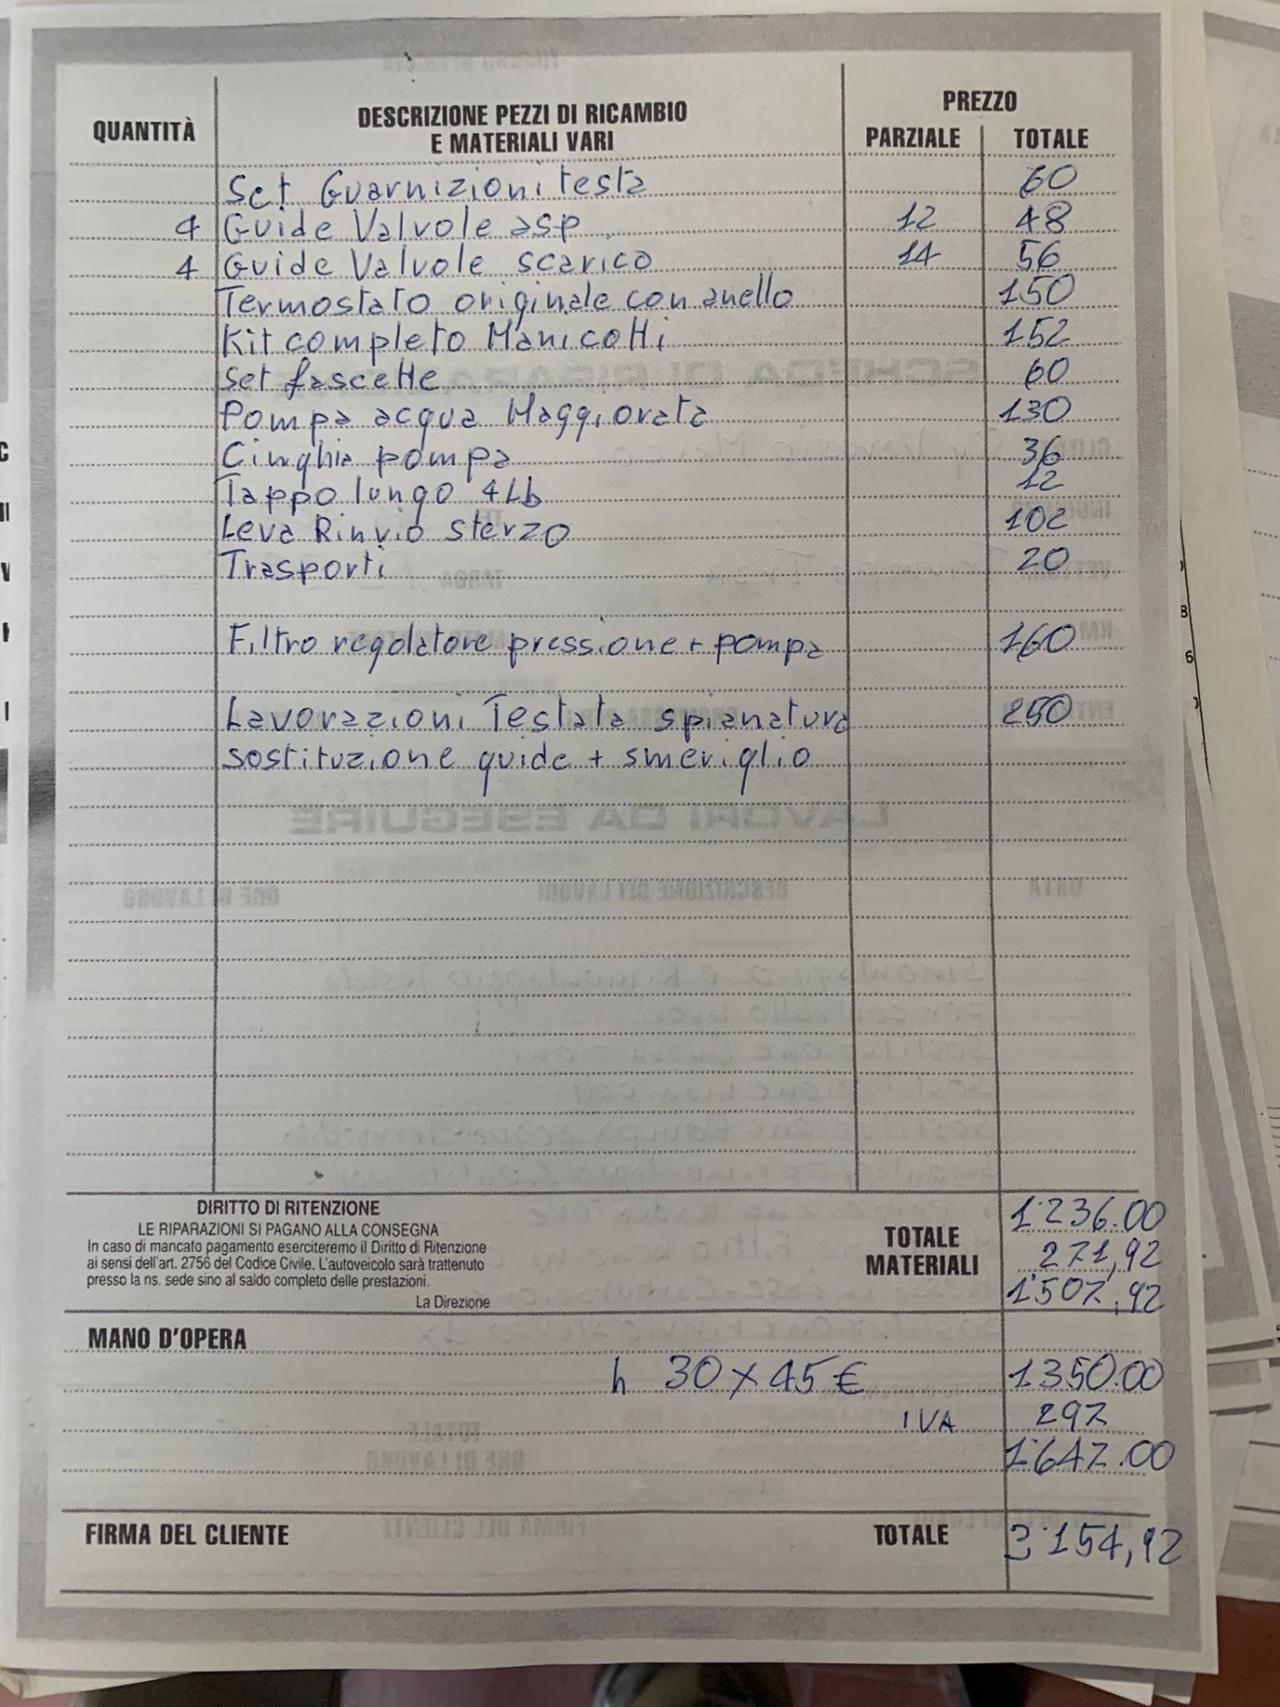 QUANTITÀ DESCRIZIONE PEZZI DI RICAMBIO E MATERIALI VARI PREZZO
PARZIALE TOTALE
Set Guarnizioni testa 60
4 Guide Valvole asp 12 48
4 Guide Valvole scarico 14 56
Termostato originale con anello 150
Kit completo Manicotti 152
Set fascette 60
Pompa acqua Maggiorata 130
Cinghia pompa 36
Tappo lungo 4Lb 12
Leva Rinvio sterzo 102
Trasporti 20
Filtro regolatore pressione + pompa 160
Lavorazioni Testata spianatura 250
sostituzione guide + smeriglio
DIRITTO DI RITENZIONE
LE RIPARAZIONI SI PAGANO ALLA CONSEGNA
In caso di mancato pagamento eserciteremo il Diritto di Ritenzione
ai sensi dell'art. 2756 del Codice Civile. L'autoveicolo sarà trattenuto
presso la ns. sede sino al saldo completo delle prestazioni.
La Direzione
TOTALE MATERIALI
1'236.00
271,92
1'507,92
MANO D'OPERA
h 30 x 45 € 1350.00
IVA 297
1'647.00
FIRMA DEL CLIENTE TOTALE 3'154,92